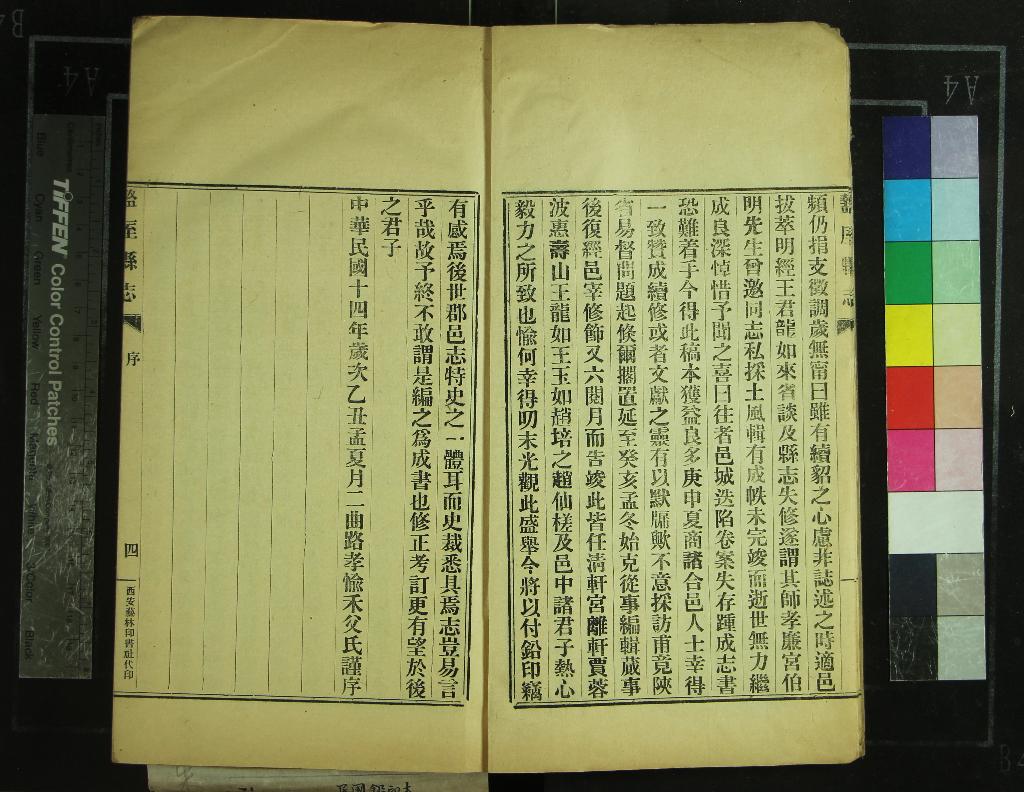 頻仍指支徵調歲無甯日雖有續貂之心慮非誌述之時適邑
拔萃明經王君龍如來省談及縣志失修遂謂其師孝廉宮伯
明先生曾邀同志私採土風輯有成帙未完竣而逝世無力繼
成良深悼惜予聞之喜曰往者邑城迭陷卷案失存踵成志書
恐難着手今得此稿本獲益良多庚申夏商諸合邑人士幸得
一致贊成續修或者文獻之靈有以默牖歟不意採訪甫竟陝
省易督問題起倏爾擱置延至癸亥孟冬始克從事編輯蕆事
後復經邑宰修飾又六閱月而告竣此皆任淸軒宮離軒賈蓉
波惠壽山王龍如王玉如趙培之趙仙槎及邑中諸君子熱心
毅力之所致也愉何幸得叨末光觀此盛舉今將以付鉛印竊
有感焉後世郡邑志特史之一體耳而史裁悉具焉志豈易言
乎哉故予終不敢謂是編之爲成書也修正考訂更有望於後
之君子
中華民國十四年歲次乙丑孟夏月二曲路孝愉禾父氏謹序
盩厔縣志
序
四
西安藝林印書社代印
TIFFEN Color Control Patches
Blue
Cyan
Green
Yellow
Red
Magenta
White
3/Color
Black
A4
A4